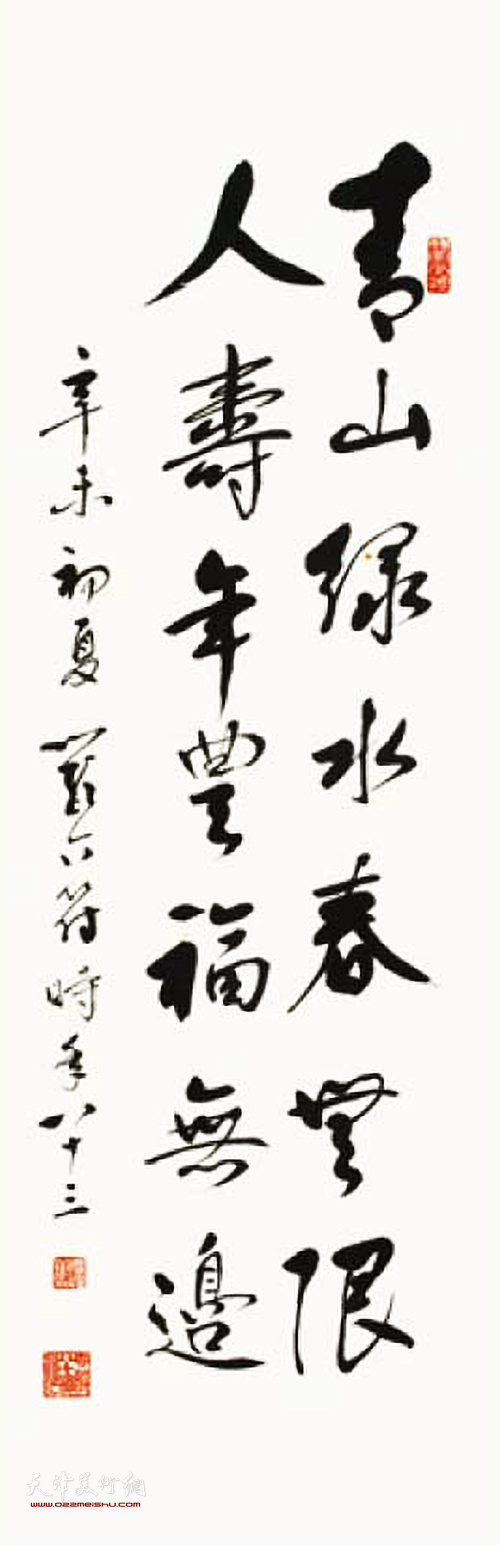 青山緑水春無限
人壽年豐福無邊
辛未初夏 嚴六符時年八十三
天津美術網
www.022meishu.com